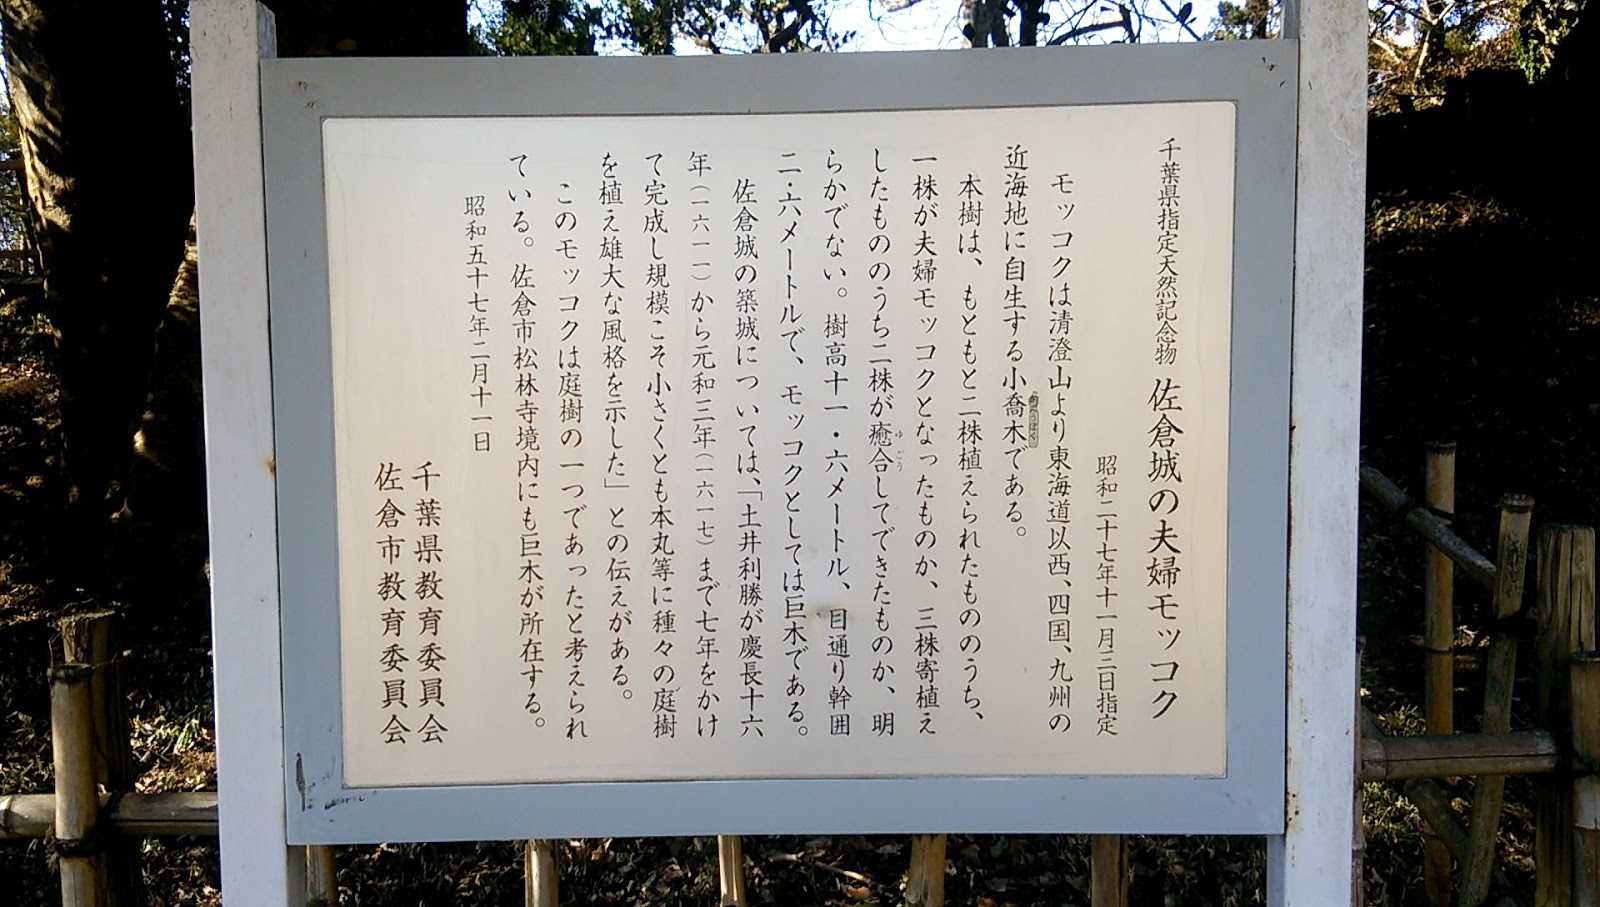 千葉県指定天然記念物 佐倉城の夫婦モッコク
昭和二十七年十一月三日指定
モッコクは清澄山より東海道以西、四国、九州の
近海地に自生する小喬木である。
本樹は、もともと二株植えられたもののうち、
一株が夫婦モッコクとなったものか、三株寄植え
したもののうち二株が癒合してできたものか、明
らかでない。樹高十一・六メートル、目通り幹囲
二・六メートルで、モッコクとしては巨木である。
佐倉城の築城については、「土井利勝が慶長十六
年（一六一一）から元和三年（一六一七）まで七年をかけ
て完成し規模こそ小さくとも本丸等に種々の庭樹
を植え雄大な風格を示した」との伝えがある。
このモッコクは庭樹の一つであったと考えられ
ている。佐倉市松林寺境内にも巨木が所在する。
昭和五十七年二月十一日
千葉県教育委員会
佐倉市教育委員会